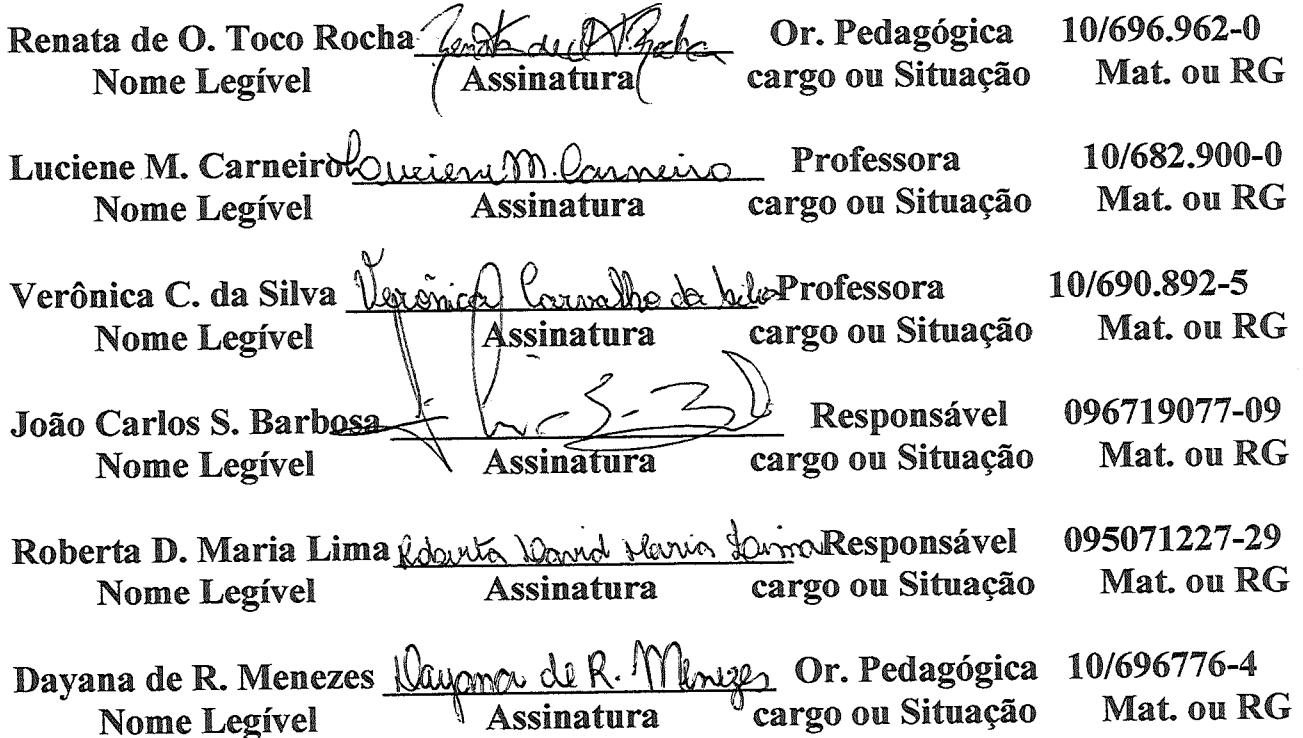 Renata de O. Toco Rocha Renata de O. T. Rocha Or. Pedagógica 10/696.962-0
Nome Legível Assinatura cargo ou Situação Mat. ou RG
Luciene M. Carneiro Luciene M. Carneiro Professora 10/682.900-0
Nome Legível Assinatura cargo ou Situação Mat. ou RG
Verônica C. da Silva Verônica Carvalho da Silva Professora 10/690.892-5
Nome Legível Assinatura cargo ou Situação Mat. ou RG
João Carlos S. Barbosa Responsável 096719077-09
Nome Legível Assinatura cargo ou Situação Mat. ou RG
Roberta D. Maria Lima Roberta David Maria Lima Responsável 095071227-29
Nome Legível Assinatura cargo ou Situação Mat. ou RG
Dayana de R. Menezes Dayana de R. Menezes Or. Pedagógica 10/696776-4
Nome Legível Assinatura cargo ou Situação Mat. ou RG